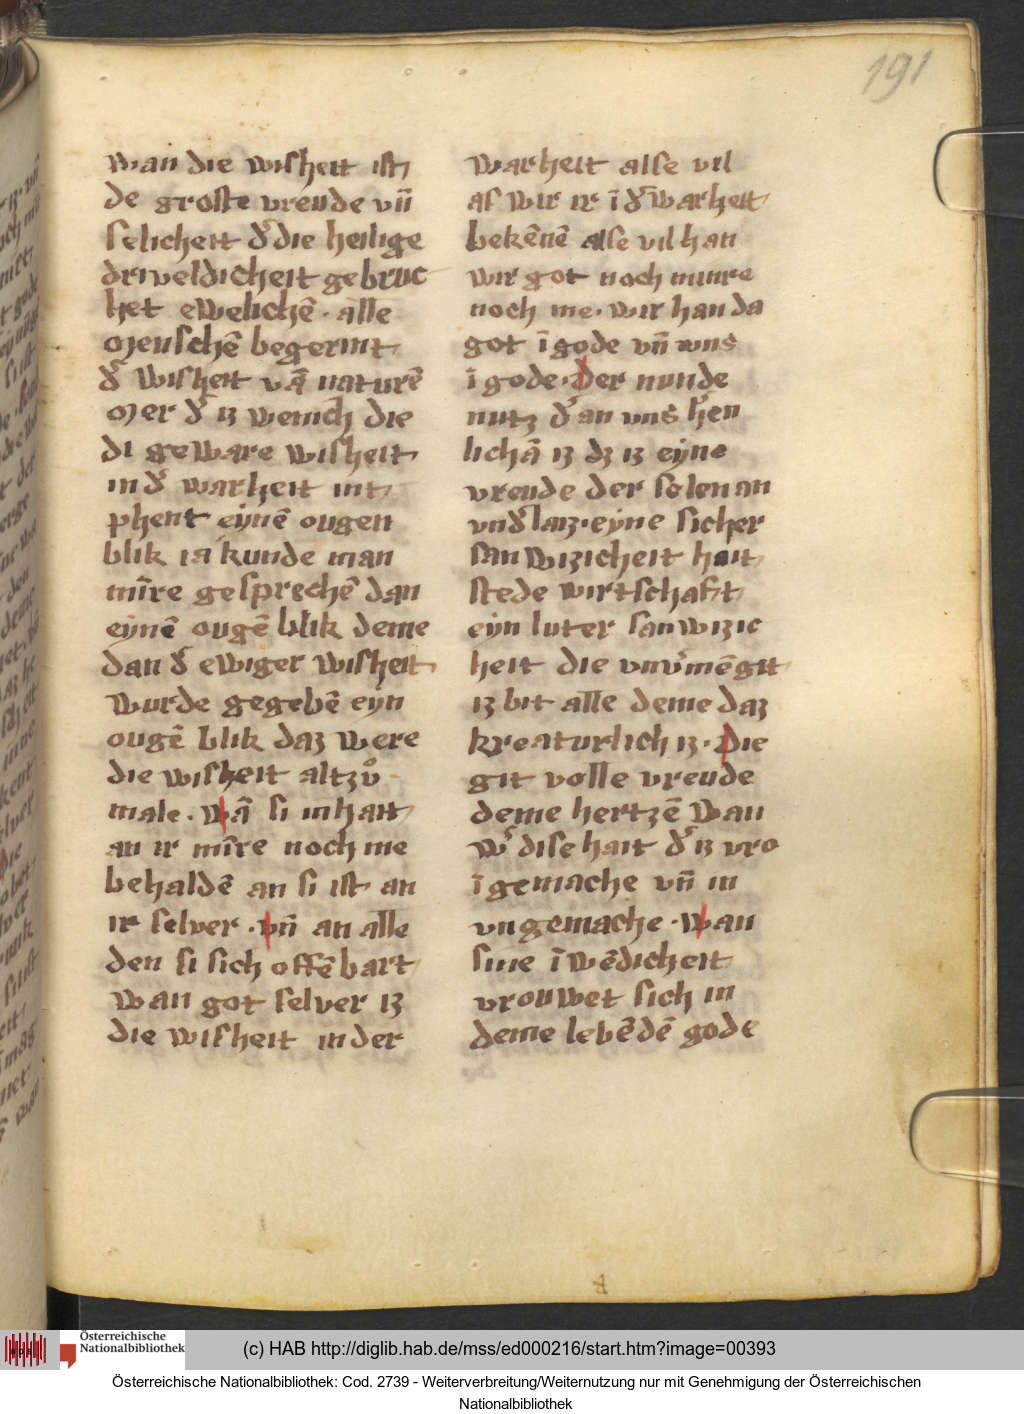 191
wan die wisheit ist
de groste vreude vn̄
selicheit d̾ die heilige
driueldicheit gebruc
het ewelichē · alle
Menschē begerint
d̾ wisheit vā naturē
Mer d̾ iz wenich die
di geware wisheit
in d̾ warheit int
phent eynē ougen
blik ia kunde man
mı̄re gesprechē dan
eynē ougē blik deme
dan d̾ ewiger wisheit
wurde gegebē eyn
ougē blik daz were
die wisheit altzůͦ
male · wā si inhatt
an ir mı̄re noch me
behaldē an si ist an
ir selver · vn̄ an alle
den si sich offēbart
wan got selver iz
die wisheit in der
warheit alse vil
as wir ir ī d̾ warheit
bekēnē alse vil han
wir got noch minre
noch me · wir han da
got ī gode vn̄ uns
ī gode · Der nunde
nutz d̾ an uns h̾en
lichā iz dz iz eyne
vreude der selen an
vnd̾laz · eyne sicher
sanwizicheit hait
stede wirtschaft
eyn luter sanwizic
heit die unv̾mēgit
iz bit alle deme daz
kreaturlich iz · Die
git volle vreude
deme hertzē wan
w̾ dise hait d̾ iz vro
ī gemache vn̄ in
ungemache · wan
sine īwēdicheit
vrouwet sich in
deme lebēdē gode
(c) HAB http://diglib.hab.de/mss/ed000216/start.htm?image=00393
Österreichische
Nationalbibliothek
Österreichische Nationalbibliothek: Cod. 2739 - Weiterverbreitung/Weiternutzung nur mit Genehmigung der Österreichischen
Nationalbibliothek